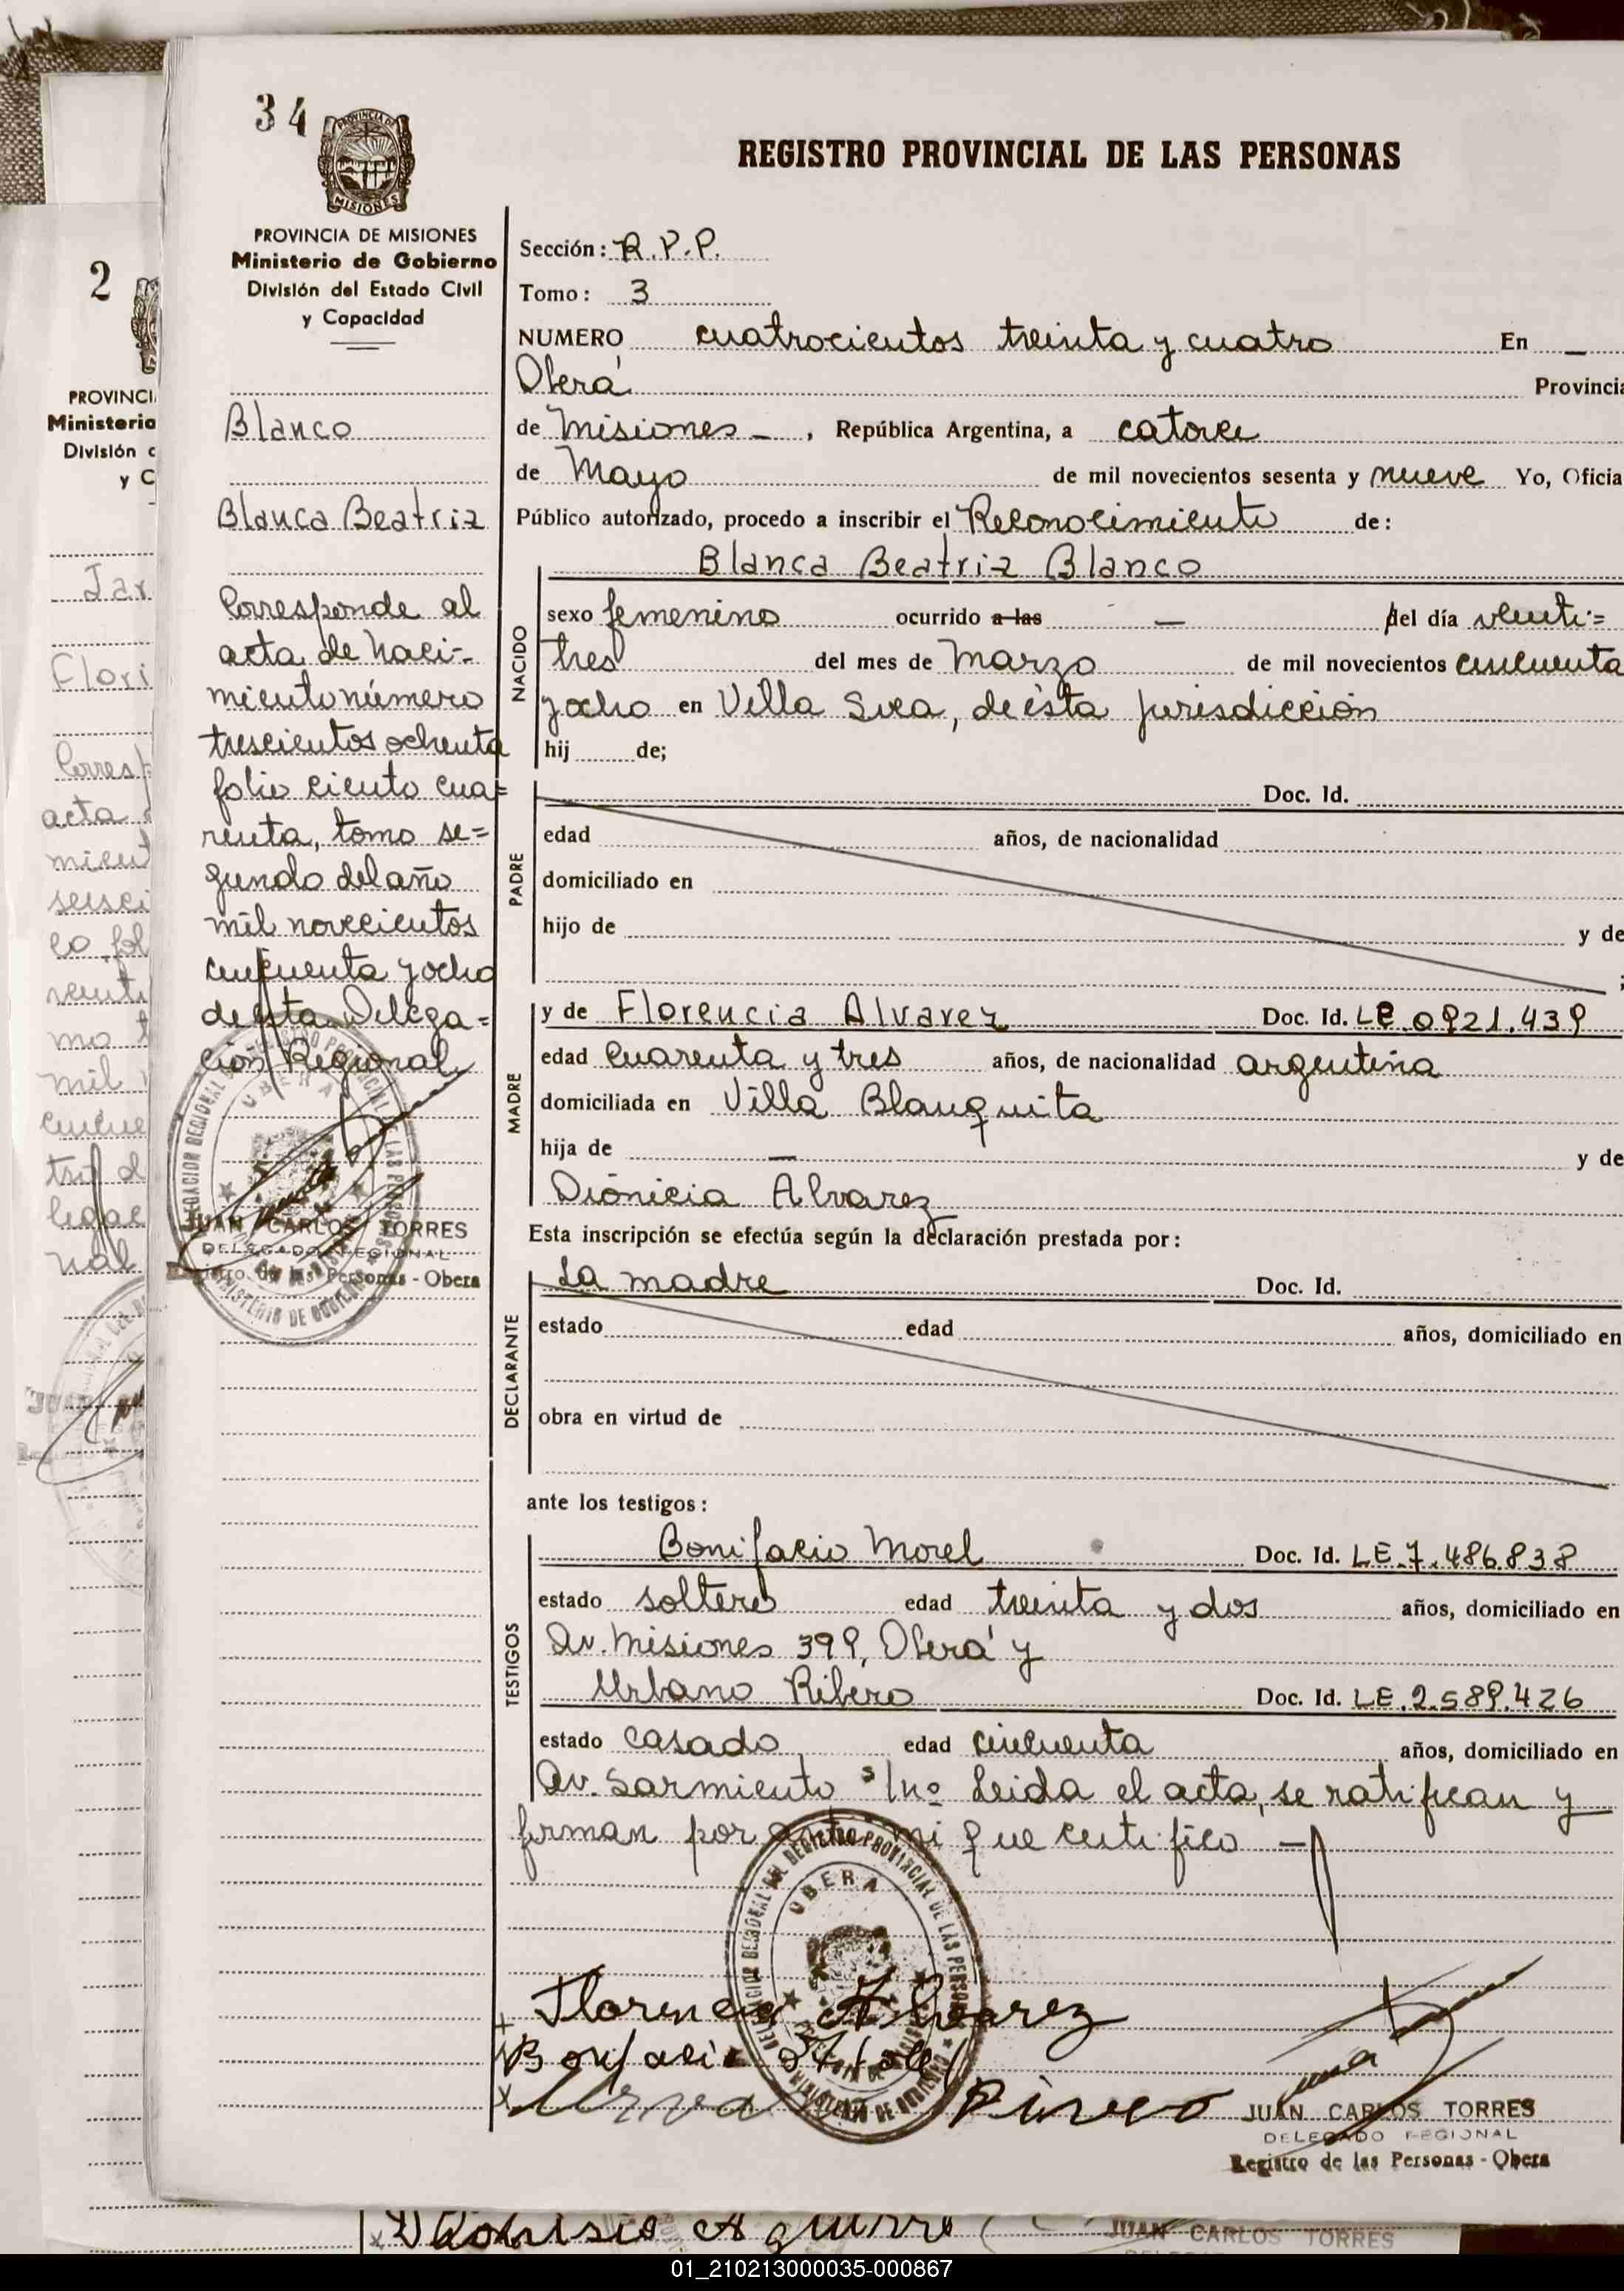 34
PROVINCIA DE
MISIONES
REGISTRO PROVINCIAL DE LAS PERSONAS
PROVINCIA DE MISIONES
Ministerio de Gobierno
División del Estado Civil
y Capacidad
Blanco
Blanca Beatriz
Corresponde al
acta de naci-
miento número
trescientos ochenta
folio ciento cua=
renta, tomo se=
gundo del año
mil novecientos
cincuenta y ocho
de esta Delega=
ción Regional
JUAN CARLOS TORRES
DELEGADO REGIONAL
Registro de las Personas - Obera
Sección: R.P.P.
Tomo: 3
NUMERO cuatrocientos treinta y cuatro En —
Oberá Provincia
de Misiones — , República Argentina, a catorce
de Mayo de mil novecientos sesenta y nueve Yo, Oficia
Público autorizado, procedo a inscribir el Reconocimiento de:
Blanca Beatriz Blanco
NACIDO
sexo femenino ocurrido a las — del día venti=
tres del mes de Marzo de mil novecientos cincuenta
y ocho en Villa Svea, de ésta jurisdicción
hij de;
PADRE
Doc. Id.
edad años, de nacionalidad
domiciliado en
hijo de y de
MADRE
y de Florencia Alvarez Doc. Id. LC 0921.439
edad cuarenta y tres años, de nacionalidad argentina
domiciliada en Villa Blanquita
hija de — y de
Diónicia Alvarez
Esta inscripción se efectúa según la declaración prestada por:
DECLARANTE
La madre Doc. Id.
estado edad años, domiciliado en
obra en virtud de
ante los testigos:
TESTIGOS
Bonifacio Morel Doc. Id. LE.7.486.838
estado soltero edad treinta y dos años, domiciliado en
Av. Misiones 399, Oberá y
Urbano Ribero Doc. Id. LE.2.589.426
estado casado edad cincuenta años, domiciliado en
Av. Sarmiento s/nº Leida el acta, se ratifican y
firman por ante mi que certifico —
DELEGACION REGIONAL DEL REGISTRO PROVINCIAL DE LAS PERSONAS
OBERA
MINISTERIO DE GOBIERNO
Florencia Alvarez
JUAN CARLOS TORRES
DELEGADO REGIONAL
Registro de las Personas - Obera
2
PROVINCI
Ministerio
División
y C
Flori
acta
mil
JUAN CARLOS TORRES
01_210213000035-000867